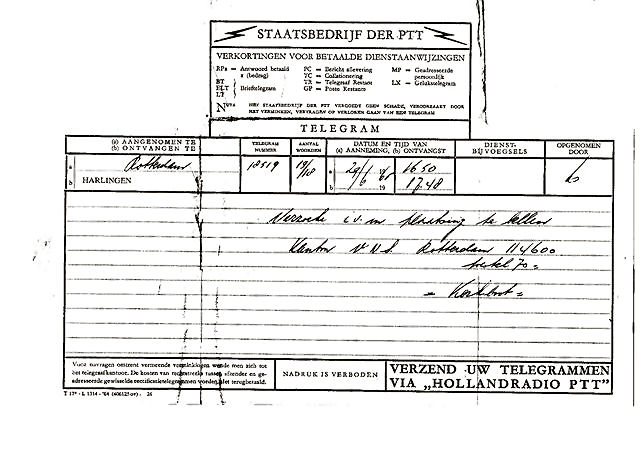 STAATSBEDRIJF DER PTT
VERKORTINGEN VOOR BETAALDE DIENSTAANWIJZINGEN
RPx = Antwoord betaald x (bedrag)
PC = Bericht aflevering
MP = Geadresseerde persoonlijk
TC = Collationering
BT
ELT
LT
Brieftelegram
TR = Telegraaf Restant
LX = Gelukstelegram
GP = Poste Restante
NOTA HET STAATSBEDRIJF DER PTT VERGOEDT GEEN SCHADE, VEROORZAAKT DOOR
HET VERMINKEN, VERTRAGEN OF VERLOREN GAAN VAN EEN TELEGRAM
TELEGRAM
(a) AANGENOMEN TE
(b) ONTVANGEN TE
TELEGRAM NUMMER
AANTAL WOORDEN
DATUM EN TIJD VAN
(a) AANNEMING, (b) ONTVANGST
DIENST-BIJVOEGSELS
OPGENOMEN DOOR
a Rotterdam 18519 19/18 29/6 16 50
b HARLINGEN b 19 17.48
Verzoeke i.v.m. plaatsing te bellen
Kantoor Rotterdam 114600
toestel 70 =
Voor navragen omtrent vermeende verminkingen wende men zich tot
het telegraafkantoor. De kosten van tussen afzender en ge-
adresseerde gewisselde rectificatietelegrammen worden niet terugbetaald.
NADRUK IS VERBODEN
VERZEND UW TELEGRAMMEN
VIA „HOLLANDRADIO PTT"
T 17* - L 1314 - '64 (406125 ov) - 26